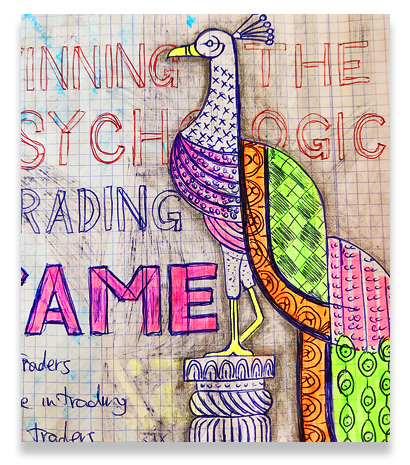 INNING THE
SYCH OGIC
RADING
AME
raders
e in trading
traders